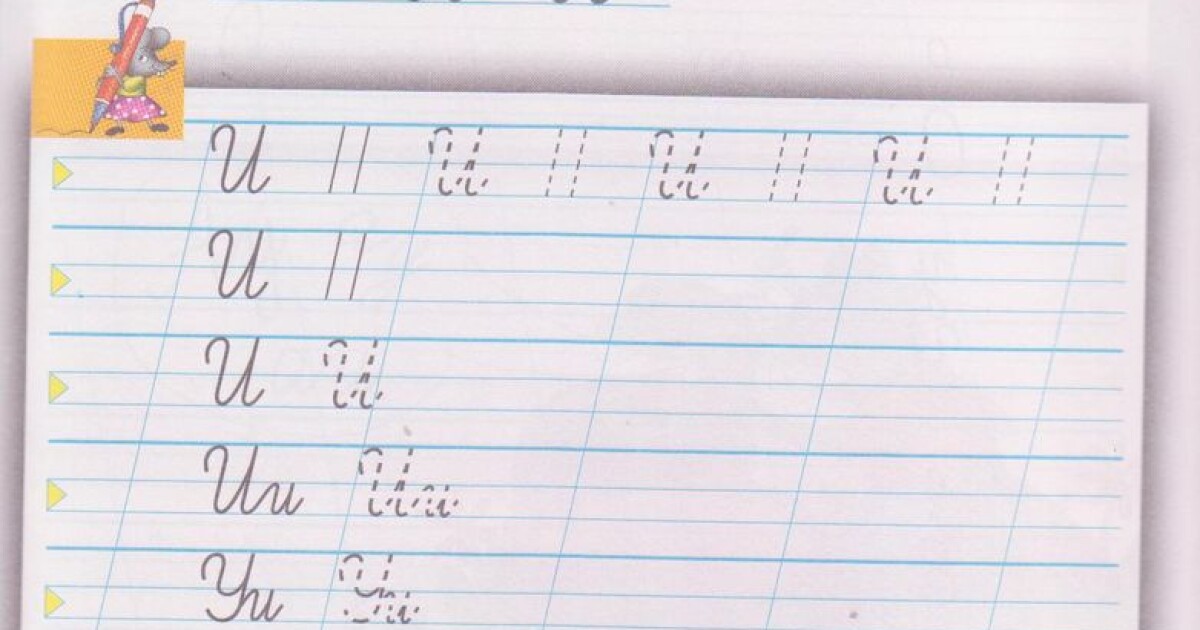 И И И И
И
И И
Ии Ии
Уи Уи